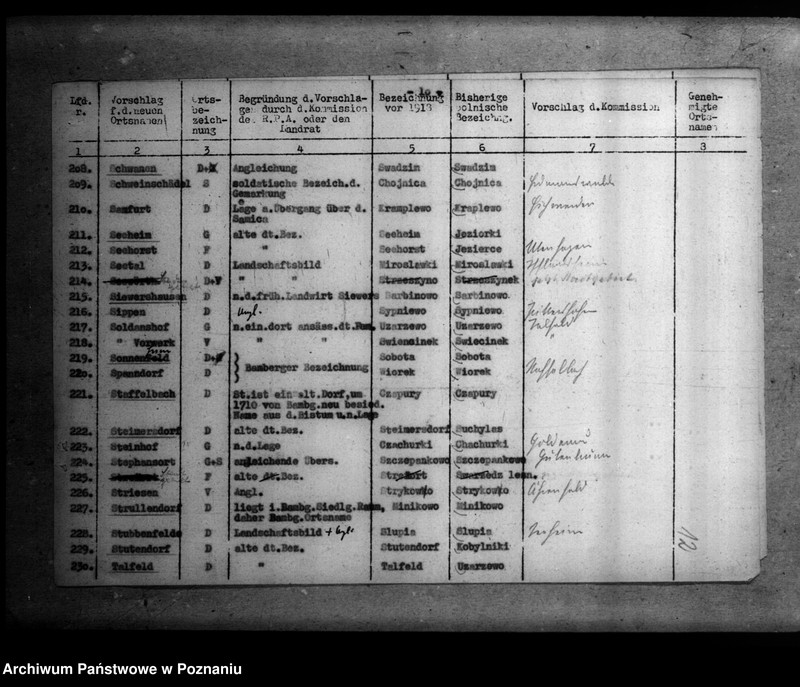 - 10 -
Lfd. r. Vorschlag f.d.neuen Ortsnamen Orts-be-zeich-nung Begründung d.Vorschla-ges durch d.Kommission des R.P.A. oder den Landrat Bezeichnung vor 1918 Bisherige polnische Bezeichng. Vorschlag d.Kommission Geneh-migte Orts-namen
1 2 3 4 5 6 7 8
208. Schwanen Angleichung Swadzim Swadzim
209. Schweinschädel S soldatische Bezeich.d. Chojnica Chojnica
Gemarkung
210. Samfurt D Lage a.Übergang über d. Kramplewo Kraplewo
Samica
211. Seeheim G alte dt.Bez. Seeheim Jeziorki
212. Seehorst F " Seehorst Jezierce
213. Seetal D Landschaftsbild Miroslawki Miroslawki
214. D+V " " Strzeszyno Strzeszynek
215. Siewershausen D n.d.früh.Landwirt Siewers Barbinowo Sarbinowo
216. Sippen D Angl. Sypniewo Sypniewo
217. Soldanshof G n.ein.dort ansäss.dt.Fam. Uzarzewo Uzarzewo
218. " Vorwerk V " " Swiensinek Swiecinek
219. Sonnenfeld Sobota Sobota
Bamberger Bezeichnung
220. Spansdorf D Wiorek Wiorek
221. Staffelbach D St.ist ein alt.Dorf,um Czapury Czapury
1710 von Bambg.neu besied.
Name aus d.Bistum u.n.Lage
222. Steimersdorf D alte dt.Bez. Steimersdorf Suchylas
223. Steinhof G n.d.Lage Czachurki Chachurki
224. Stephansort G+S angleichende Übers. Szczepankowo Szczepankowo
225. F alte dt.Bez. Swarzedz lesn.
226. Striesen V Angl. Strykowko Strykowko
227. Strullendorf D liegt i.Bambg.Siedlg.Raum, Minikowo Minikowo
daher Bambg.Ortsname
228. Stubbenfelde D Landschaftsbild + Angl. Slupia Slupia
229. Stutendorf D alte dt.Bez. Stutendorf Kobylniki
230. Talfeld D " Talfeld Uzarzewo
Archiwum Państwowe w Poznaniu